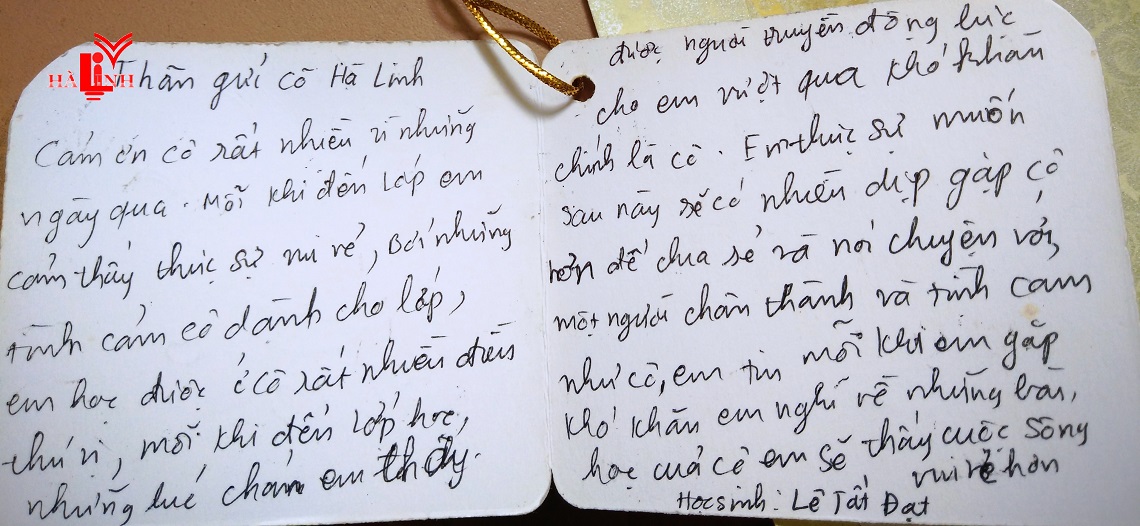 HÀ LINH
Thân gửi cô Hà Linh
Cảm ơn cô rất nhiều vì những
ngày qua. Mỗi khi đến lớp em
cảm thấy thực sự vui vẻ, bởi những
tình cảm cô dành cho lớp,
em học được ở cô rất nhiều điều
thú vị, mỗi khi đến lớp học,
những lúc chán em thấy.
được người truyền động lực
cho em vượt qua khó khăn
chính là cô. Em thực sự muốn
sau này sẽ có nhiều dịp gặp cô
hơn để chia sẻ và nói chuyện với,
một người chân thành và tình cảm
như cô, em tin mỗi khi em gặp
khó khăn em nghĩ về những bài,
học của cô em sẽ thấy cuộc sống
vui vẻ hơn
Học sinh: Lê Tất Đạt